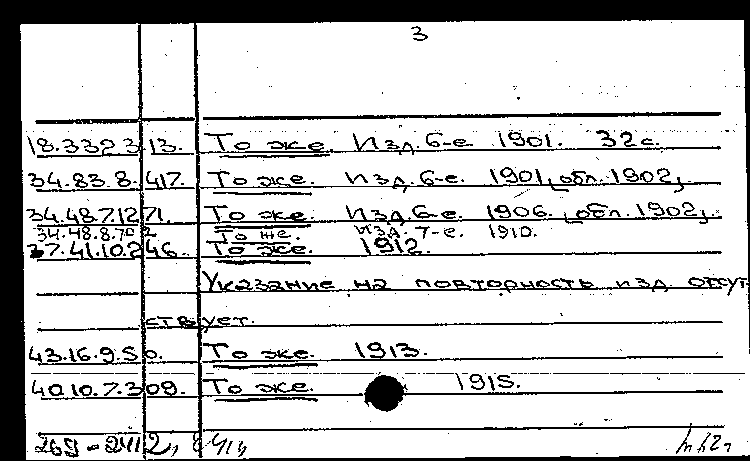 3
18.332.3.13. То же. Изд. 6-е. 1901. 32 с.
34.83.8.417. То же. Изд. 6-е. 1901 [обл. 1902].
34.48.7.1271. То же. Изд. 6-е. 1906. [обл. 1902].
34.48.8.702 То же. Изд. 7-е. 1910.
37.41.10.246. То же. 1912.
Указание на повторность изд. отсут-
ствует.
43.16.9.50. То же. 1913.
40.10.7.309. То же. 1915.